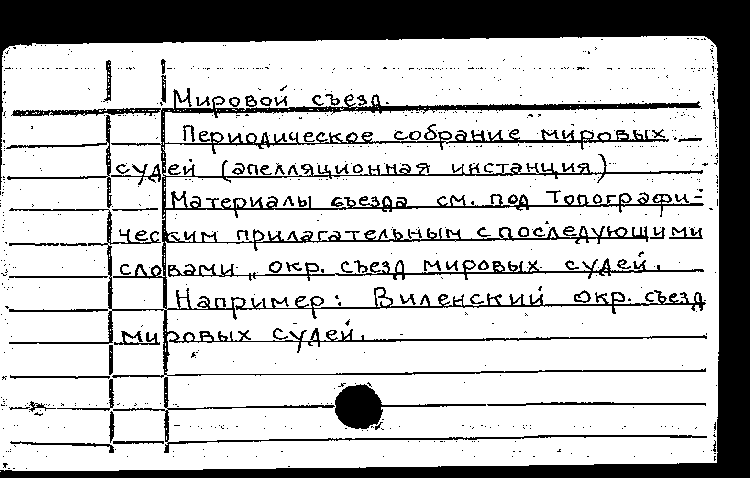 Мировой съезд.
Периодическое собрание мировых
судей (апелляционная инстанция)
Материалы съезда см. под Топографи-
ческим прилагательным с последующими
словами „ окр. съезд мировых судей.
Например: Виленский окр. съезд
мировых судей.